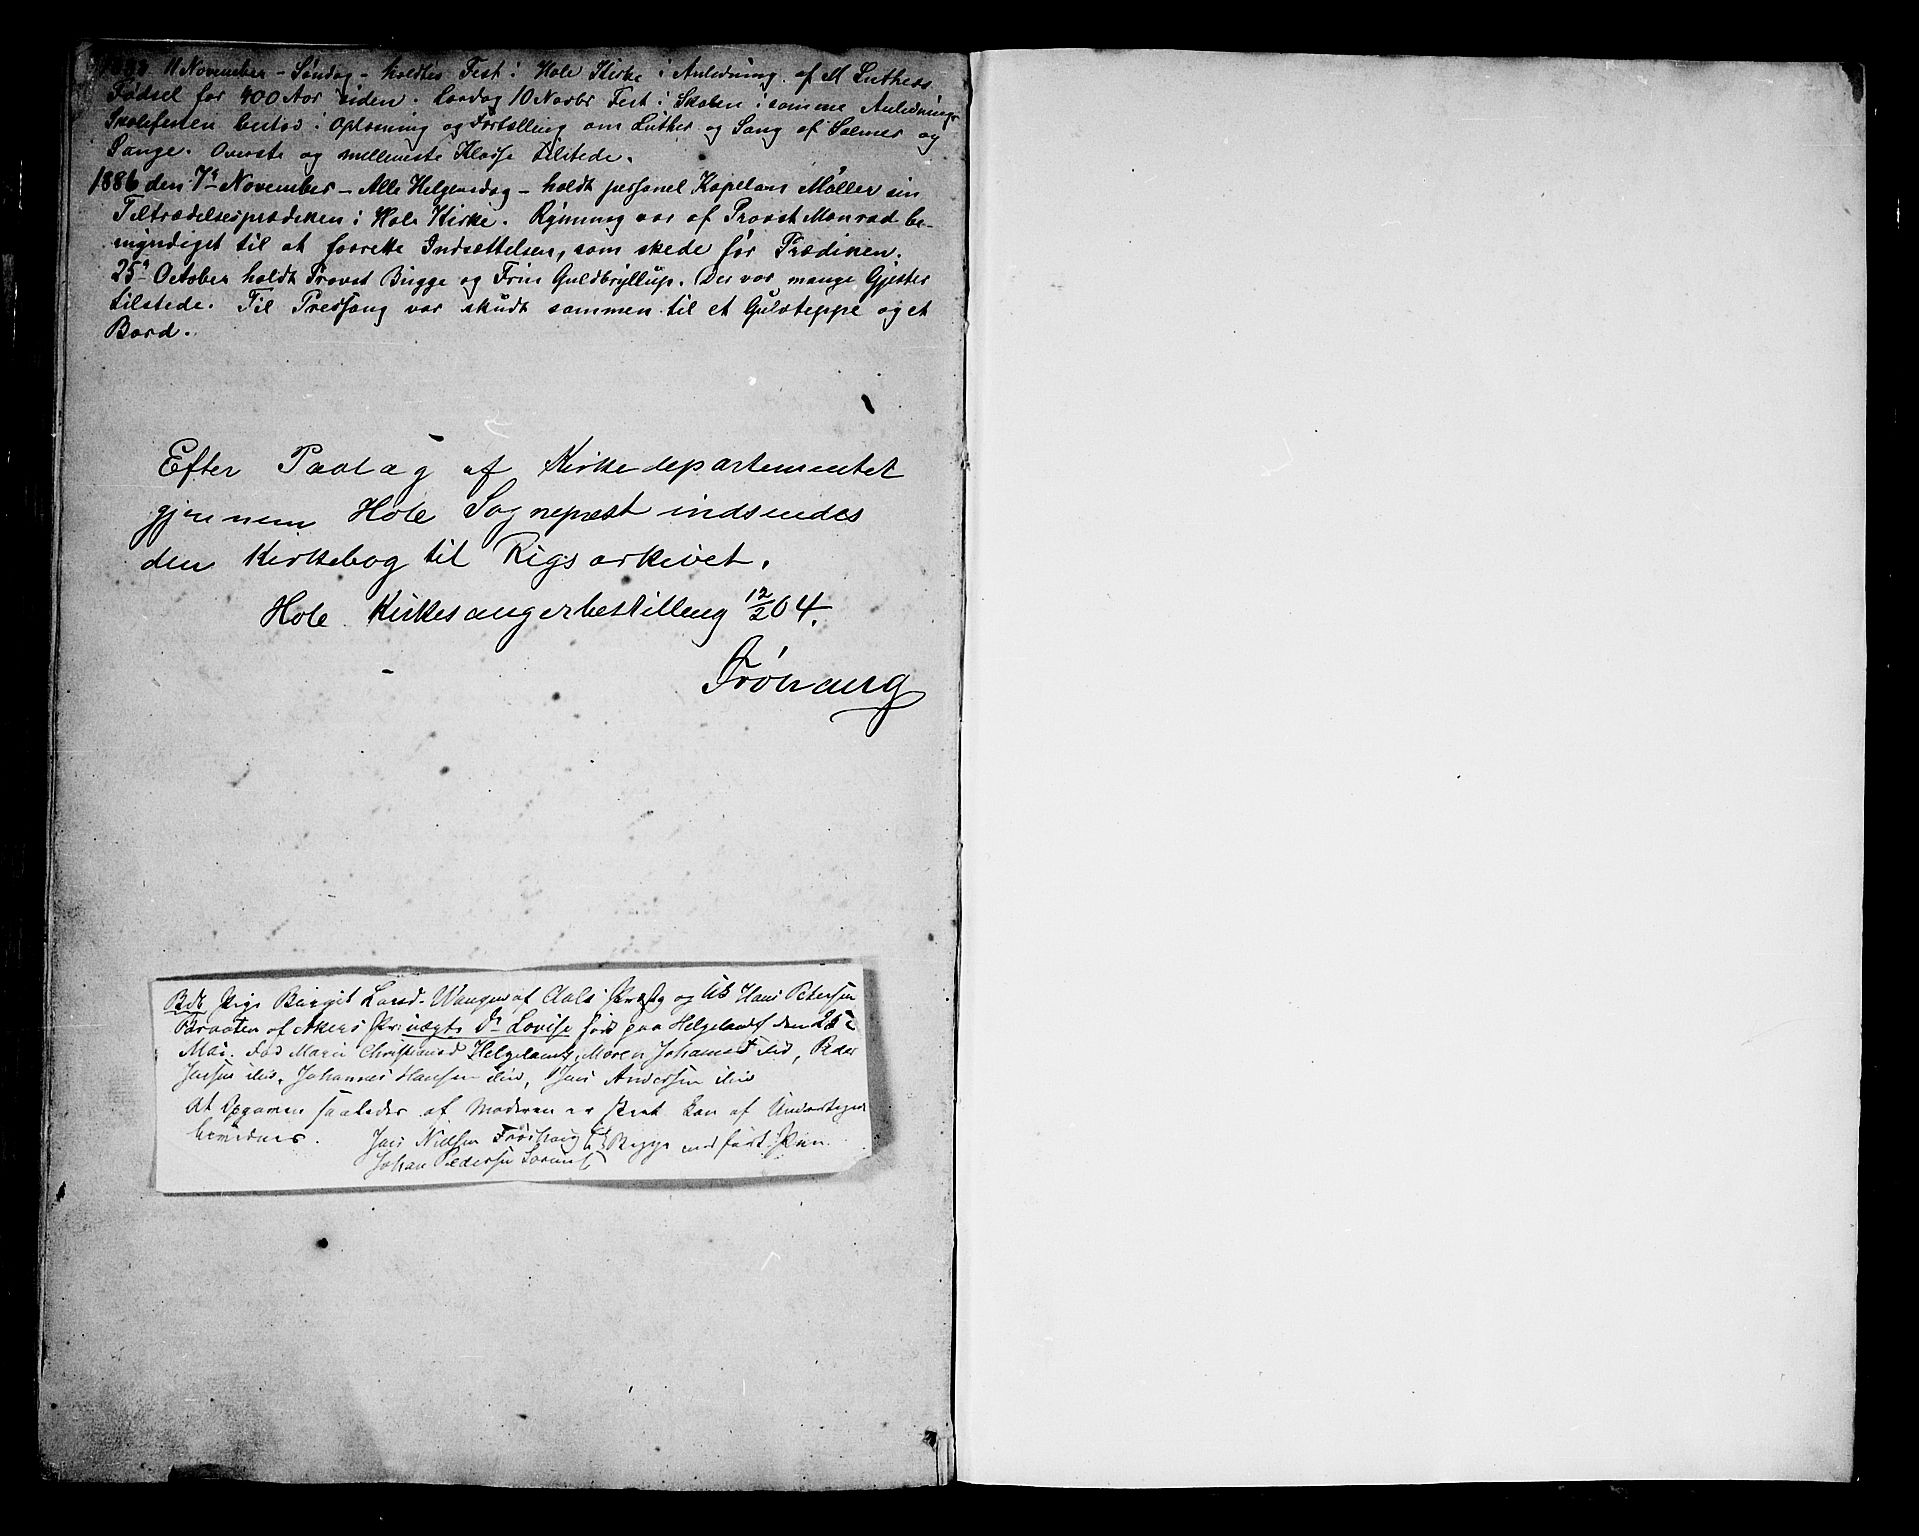 1883 11 November – Søndag – holdtes Fest i Hole Kirke i Anledning af M Luthers
Fødsel for 400 Aar siden. Lørdag 10 Novbr Fest i Skolen i samme Anledning.
Skolefesten bestod i Oplæsning og Fortælling om Luther og Sang af Salmer og
Sange. Øverste og mellemste Klasse tilstede.
1886 den 7de November – Alle Helgensdag – holdt personel Kapelan Møller sin
Tiltrædelsesprædiken i Hole Kirke. Rynning var af Provst Monrad be-
myndiget til at forrette Indsættelsen, som skede før Prædiken.
25de October holdt Provst Bugge og Frue Guldbryllup. Der var mange Gjester
tilstede. Til Presang var skudt sammen til et Gulvteppe og et
Bord.
Efter Paalæg af Kirkedepartementet
gjennem Hole Sognepræst indsendes
den Kirkebog til Rigsarkivet.
Hole Kirkesangerbestilling 12/2 04.
Pige Birgit Larsd. af Aals Præstg og Hans Petersen
Braaten af Akers Pr: uægte Dr Lovise født paa Helgeland den 25
Mai. Fad Marie Christiansd Helgeland, Maren Johannesd ibid, Peder
Jensen ibid, Johannes Hansen ibid, Andersen ibid
At Opgaven saaledes af Moderen er kan af Undertegnede
bevidnes. Nielsen
Johan Pedersen